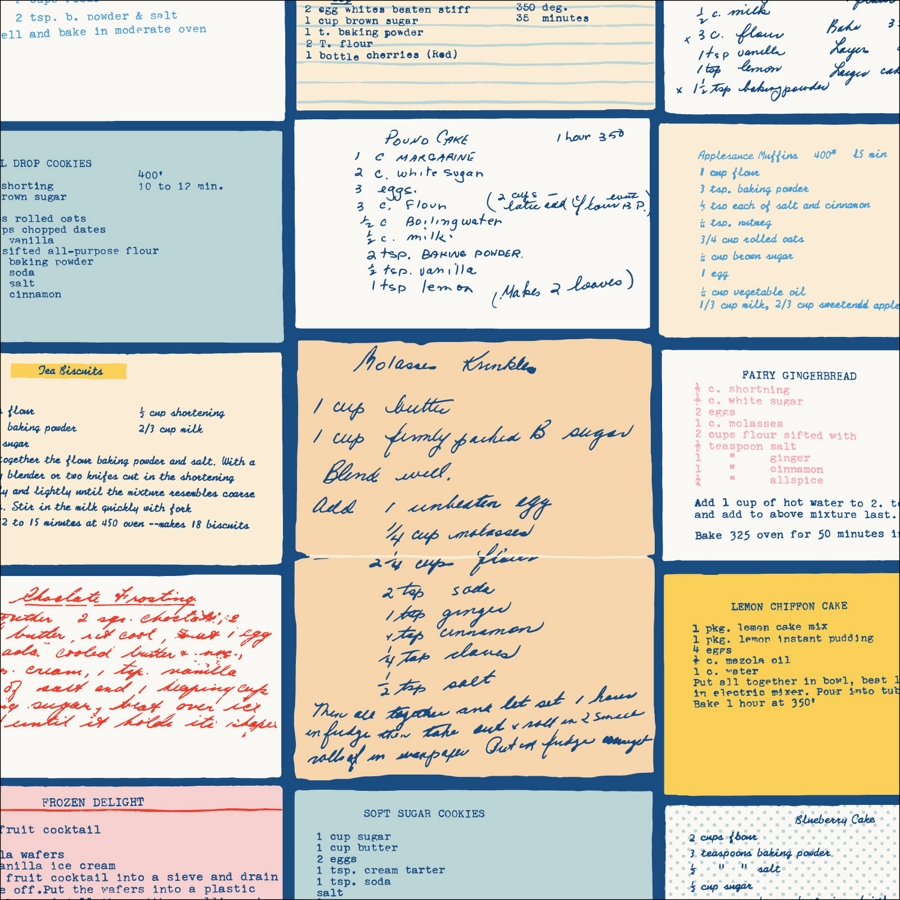 2 tsp. b. powder & salt
ell and bake in moderate oven
2 egg whites beaten stiff 350 deg.
1 cup brown sugar 35 minutes
1 t. baking powder
2 T. flour
1 bottle cherries (Red)
½ c. milk
x 3 c. flour Bake 3
1 tsp vanilla Layer
1 tsp lemon Larger cak
x 1½ tsp baking powder
L DROP COOKIES
400'
shorting 10 to 12 min.
rown sugar
s rolled oats
ps chopped dates
vanilla
sifted all-purpose flour
baking powder
soda
salt
cinnamon
POUND CAKE 1 hour 350
1 c MARGARINE
2 c. white sugar
3 eggs.
3 c. Flour (2 cups
latie add if flour B.P.)
½ c Boiling water
½ c. milk.
2 tsp. BAKING POWDER.
½ tsp. vanilla
1 tsp lemon (Makes 2 loaves)
Applesauce Muffins 400° 25 min
1 cup flour
3 tsp. baking powder
½ tsp each of salt and cinnamon
½ tsp. nutmeg
3/4 cup rolled oats
½ cup brown sugar
1 egg
½ cup vegetable oil
1/3 cup milk, 2/3 cup sweetendd apple
Tea Biscuits
flour ½ cup shortening
baking powder 2/3 cup milk
sugar
ogether the flour baking powder and salt. With a
blender or two knifes cut in the shortening
y and lightly until the mixture resembles coarse
. Stir in the milk quickly with fork
2 to 15 minutes at 450 oven --makes 18 biscuits
Molasses Krinkles
1 cup butter
1 cup firmly packed B sugar
Blend well.
Add 1 unbeaten egg
¼ cup molasses
2¼ cups flour
2 tsp soda
1 tsp ginger
1 tsp cinnamon
¼ tsp cloves
½ tsp salt
Then all together and let set 1 hour
in fudge then take out & roll in 2 small
rolls of in waxpaper Put in fudge
FAIRY GINGERBREAD
½ c. shortning
c. white sugar
2 eggs
1 c. molasses
2 cups flour sifted with
½ teaspoon salt
1 " ginger
1 " cinnamon
½ " allspice
Add 1 cup of hot water to 2. t
and add to above mixture last.
Bake 325 oven for 50 minutes i
Choclate Frosting
2 sqs. choclate, 2
butter, let cool, 1 egg
add. cooled butter
cream, 1 tsp. vanilla
of salt and 1 heaping cup
sugar, beat over ice
until it holds its shape
LEMON CHIFFON CAKE
1 pkg. lemon cake mix
1 pkg. lemon instant pudding
4 eggs
½ c. mazola oil
1 c. water
Put all together in bowl, beat 1
in electric mixer. Pour into tub
Bake 1 hour at 350'
FROZEN DELIGHT
fruit cocktail
la wafers
anilla ice cream
fruit cocktail into a sieve and drain
e off.Put the wafers into a plastic
SOFT SUGAR COOKIES
1 cup sugar
1 cup butter
2 eggs
1 tsp. cream tarter
1 tsp. soda
salt
Blueberry Cake
2 cups flour
3 teaspoons baking powder
½ " " salt
½ cup sugar